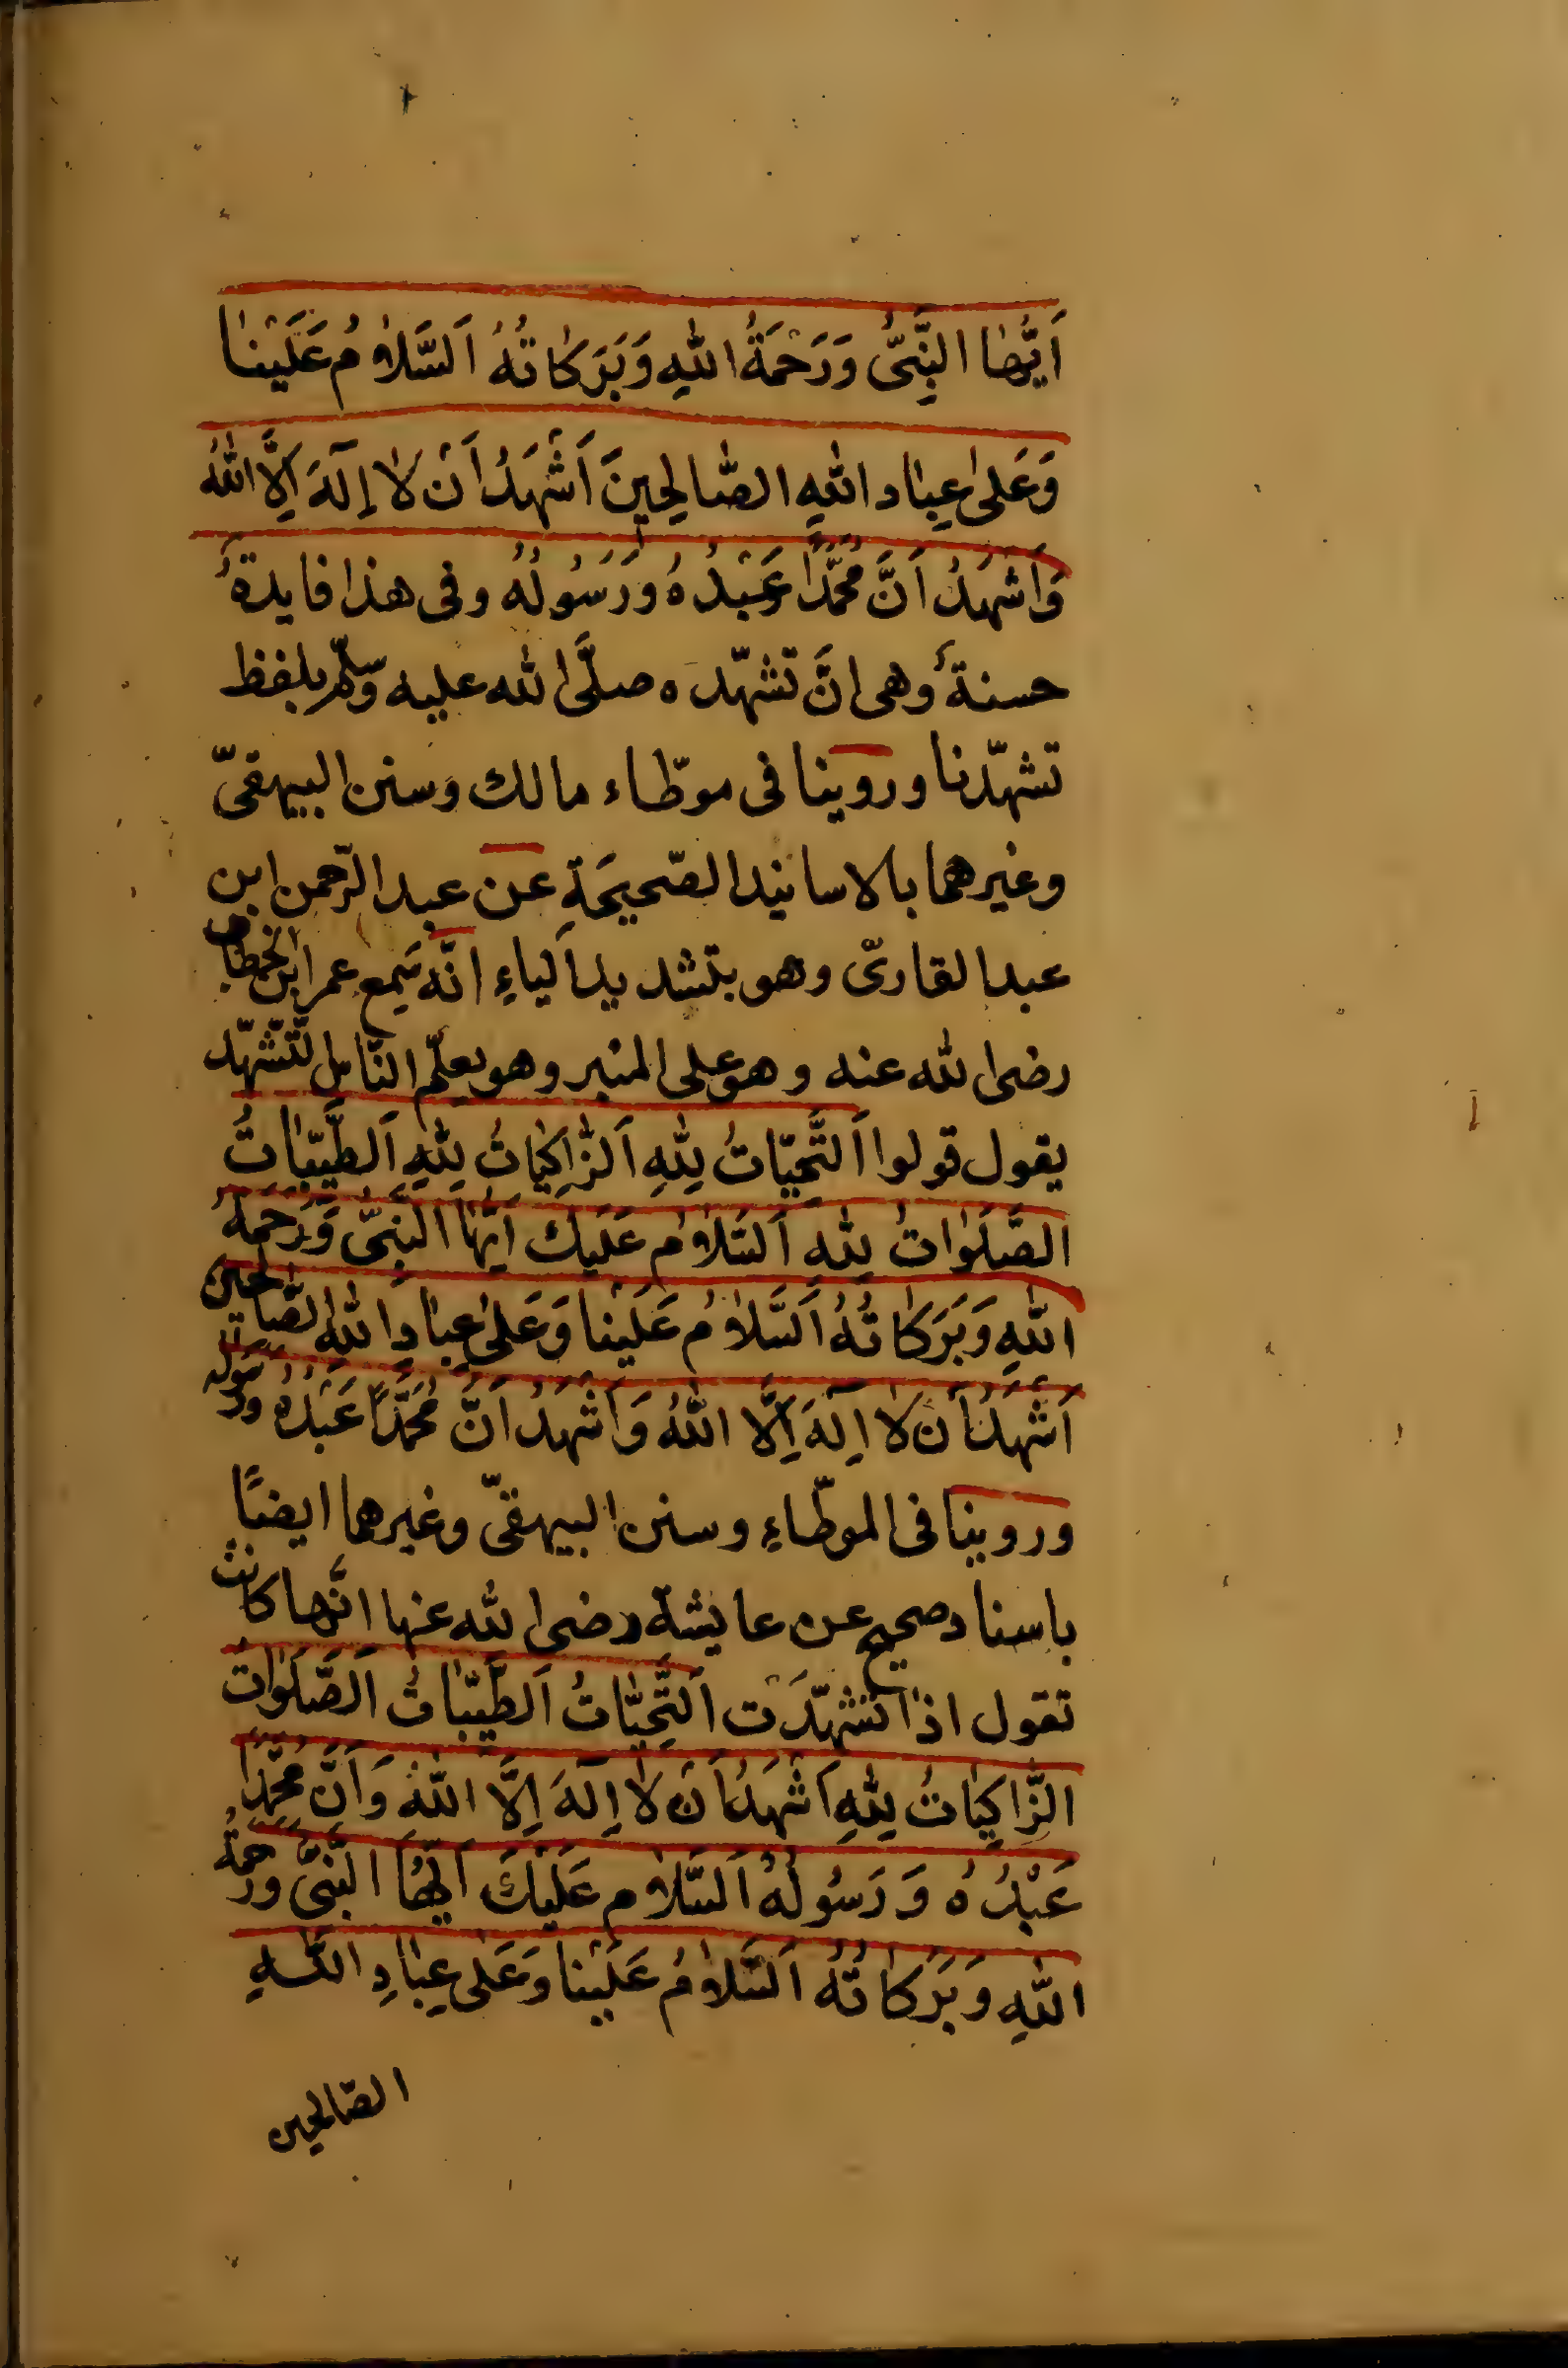 اَيُّهَا النَّبِىُّ وَرَحْمَةُ اللهِ وَبَرَكَاتُهُ اَلسَّلَامُ عَلَيْنَا
وَعَلىٰ عِبَادِ اللهِ الصَّالِحِينَ اَشْهَدُ اَنْ لَا اِلٰهَ اِلَّا اللهُ
وَاَشْهَدُ اَنَّ مُحَمَّدًا عَبْدُهُ وَرَسُولُهُ وفى هذا فايدةٌ
حسنةٌ وهى انَّ تشهّده صلَّى الله عليه وسلّم بلفظ
تشهّدنا وروينا فى موطّاء مالك وسنن البيهقىّ
وغيرهما بالاسانيد الصّحيحَةِ عن عبد الرّحمن ابن
عبد القارىّ وهو بتشديد اَلياءِ انّه سَمِع عمر ابن الخطاب
رضى الله عنه وهو على المنبر وهو يعلّم النّاس التّشهّد
يقول قولوا اَلتَّحِيَّاتُ لِلّٰهِ اَلزَّاكِيَاتُ لِلّٰهِ اَلطَّيِّبَاتُ
الصَّلَوَاتُ لِلّٰهِ اَلسَّلَامُ عَلَيْكَ اَيُّهَا النَّبِىُّ وَرَحْمَةُ
اللهِ وَبَرَكَاتُهُ اَلسَّلَامُ عَلَيْنَا وَعَلىٰ عِبَادِ اللهِ الصَّالحين
اَشْهَدُ اَنْ لَا اِلٰهَ اِلَّا اللهُ وَاَشْهَدُ اَنَّ مُحَمَّدًا عَبْدُهُ وَرَسُولُهُ
وروينا فى الموطّاءِ وسنن البيهقىّ وغيرهما ايضًا
باسناد صحيح عن عايشة رضى الله عنها انّها كانت
تقول اذا تشهّدَت اَلتَّحِيَّاتُ اَلطَّيِّبَاتُ اَلصَّلَوَاتُ
الزَّاكِيَاتُ لِلّٰهِ اَشْهَدُ اَنْ لَا اِلٰهَ اِلَّا اللهُ وَاَنَّ مُحَمَّدًا
عَبْدُهُ وَرَسُولُهُ اَلسَّلَامُ عَلَيْكَ اَيُّهَا النَّبِىُّ وَرَحْمَةُ
اللهِ وَبَرَكَاتُهُ اَلسَّلَامُ عَلَيْنَا وَعَلىٰ عِبَادِ اللهِ
الصّالحين